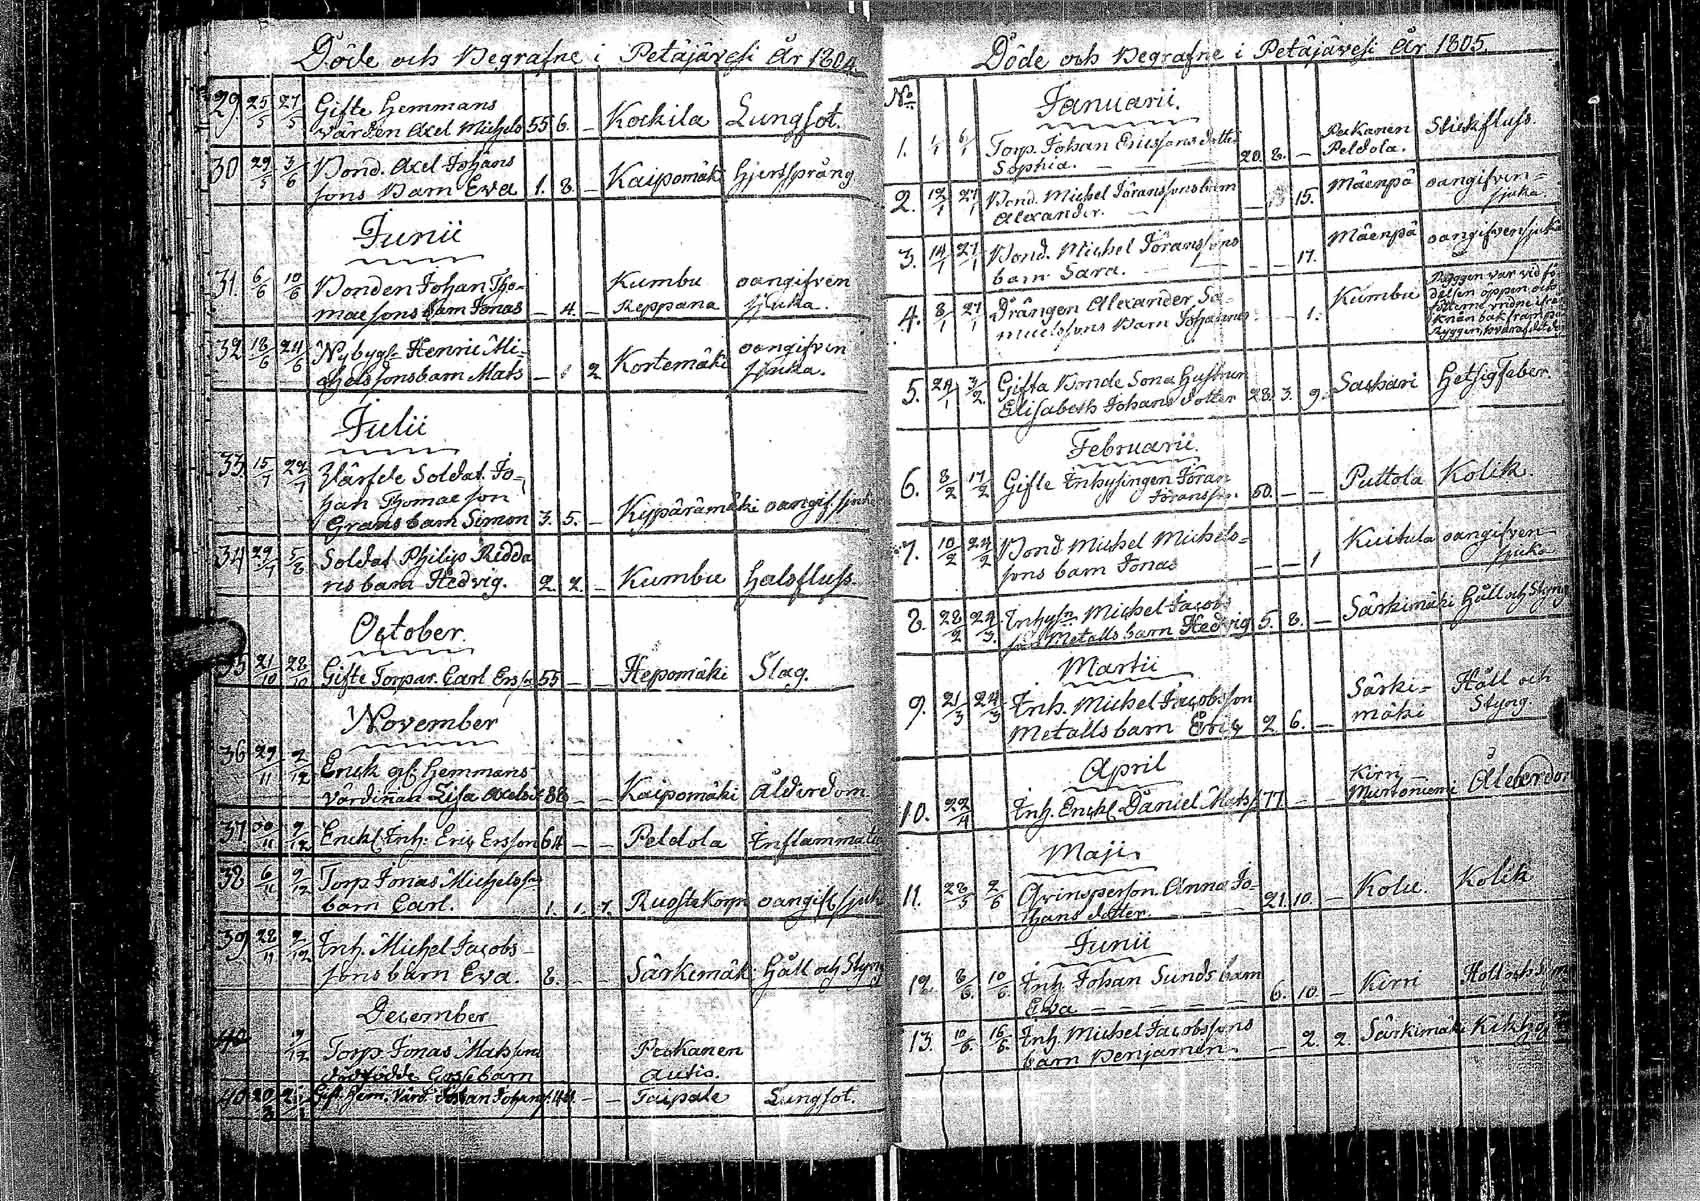 Döde och Begrafne i Petäjävesi År 1804
29. 25/5 27/5 Gifte Hemmans
värden Axel Michels 55 6. – Kockila Lungsot.
30 29/5 3/6 Bond. Axel Johans
sons Barn Eva 1. 8 – Kaipomäki
Junii
31. 6/6 10/6 Bonden Johan Tho-
mae sons barn Jonas – 4. – Kumbu oangifven
Keppana sjuka.
32 18/6 24/6 Nybygg. Henric Mi-
chelssons barn Mats – 1 2 Kortemäki oangifven
sjuka.
Julii
33. 15/7 22/7 Värfde Soldat. Jo-
han Thomae son
Grans barn Simon 3. 5. – Kypärämäki oangif. sjuka
34 29/7 5/8 Soldat Philip Redda
ris barn Hedvig. 2. 2. – Kumbu halsfluss.
October.
35 21/10 28/10 Gifte Torpar. Carl Ersson 55 – – Hepomäki Slag.
November
36 29/11 2/12 Enck gl. Hemmans-
värdinan Lisa Axelsd. – – Kaipomäki Ålderdom
37 30/11 9/12 Enckl. Inh. Eric Ersson 64 – – Peldola Inflammation
38 6/11 9/12 Torp Jonas Michelsson
barn Carl. 1. 1. 7. Ruostekorpi oangif. sjuk
39 28/11 9/12 Inh. Michel Jacobs-
sons barn Eva. 8. – Särkimäki Håll och Styng
December
40 9/12 Torp Jonas Matssons Peckanen
dödfödde barn Autio.
40 Gift Hem. Värd. Johan Johans. 44 – – Taipale Lungsot.
Döde och Begrafne i Petäjävesi År 1805.
No.
Januarii.
1. 1/1 6/1 Torp. Johan Ericssons dotter Peckanen Stickfluss.
Sophia. 20. 8. – Peldola.
2. 12/1 27/1 Bond. Michel Göranssons barn – 15. Mäenpä oangifven-
Alexander. sjuka
3. 14/1 27/1 Bond. Michel Göranssons Mäenpä oangifvensjuka
barn Sara. – – 17.
4. 8/1 27/1 Drängen Alexander Sa-
muelssons Barn Johannes – 1. Kumbu Ryggen var vid fö
delsen öppen och
5. 24/1 3/2 Gifta Bonde Sona Hustrun
Elisabeth Johans dotter 28. 3. 9. Sackari Hetsigfeber
Februarii.
6. 8/2 17/2 Gifte Inhysingen Göran
Göransson. 60. – – Puttola Kolik.
7. 10/2 24/2 Bond Michel Michels-
sons barn Jonas – – 1 Kuitula oangifven-
sjuka
8. 28/2 24/3. Inhys. Michel Jacobs
son Metalls barn Hedvig 5. 8. – Särkimäki Håll och Styng
Martii
9. 21/3 24/3 Inh. Michel Jacobsson Särki- Håll och
Metalls barn Eric 2 6. – mäki Styng.
April
10. 22/4 Inh. Enckl. Daniel Mats. 77. – Kirri
Murtoniemi Ålderdom
Maji.
11. 28/5 2/6 Qvinsperson Anna Jo-
hans dotter 21. 10. – Kolu Kolik
Junii
12. 8/6. 10/6. Inh. Johan Sunds barn
Eva 6. 10. – Kirri Håll och Styng
13. 10/6. 16/6. Inh. Michel Jacobssons
barn Benjamin – 2. 2 Särkimäki Kikhosta